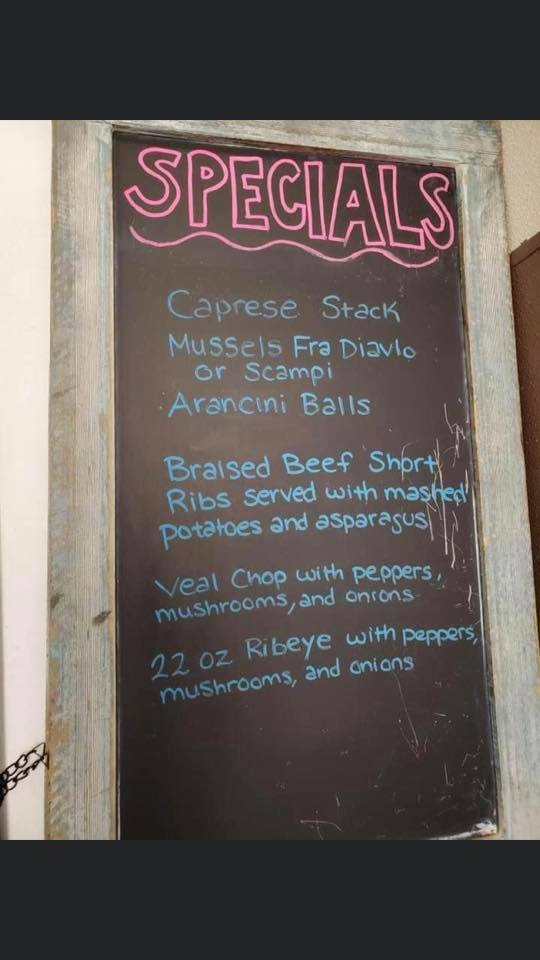 SPECIALS
Caprese Stack
Mussels Fra Diavlo
or Scampi
Arancini Balls
Braised Beef Short
Ribs served with mashed
potatoes and asparagus
Veal Chop with peppers,
mushrooms, and onions
22 oz Ribeye with peppers,
mushrooms, and onions